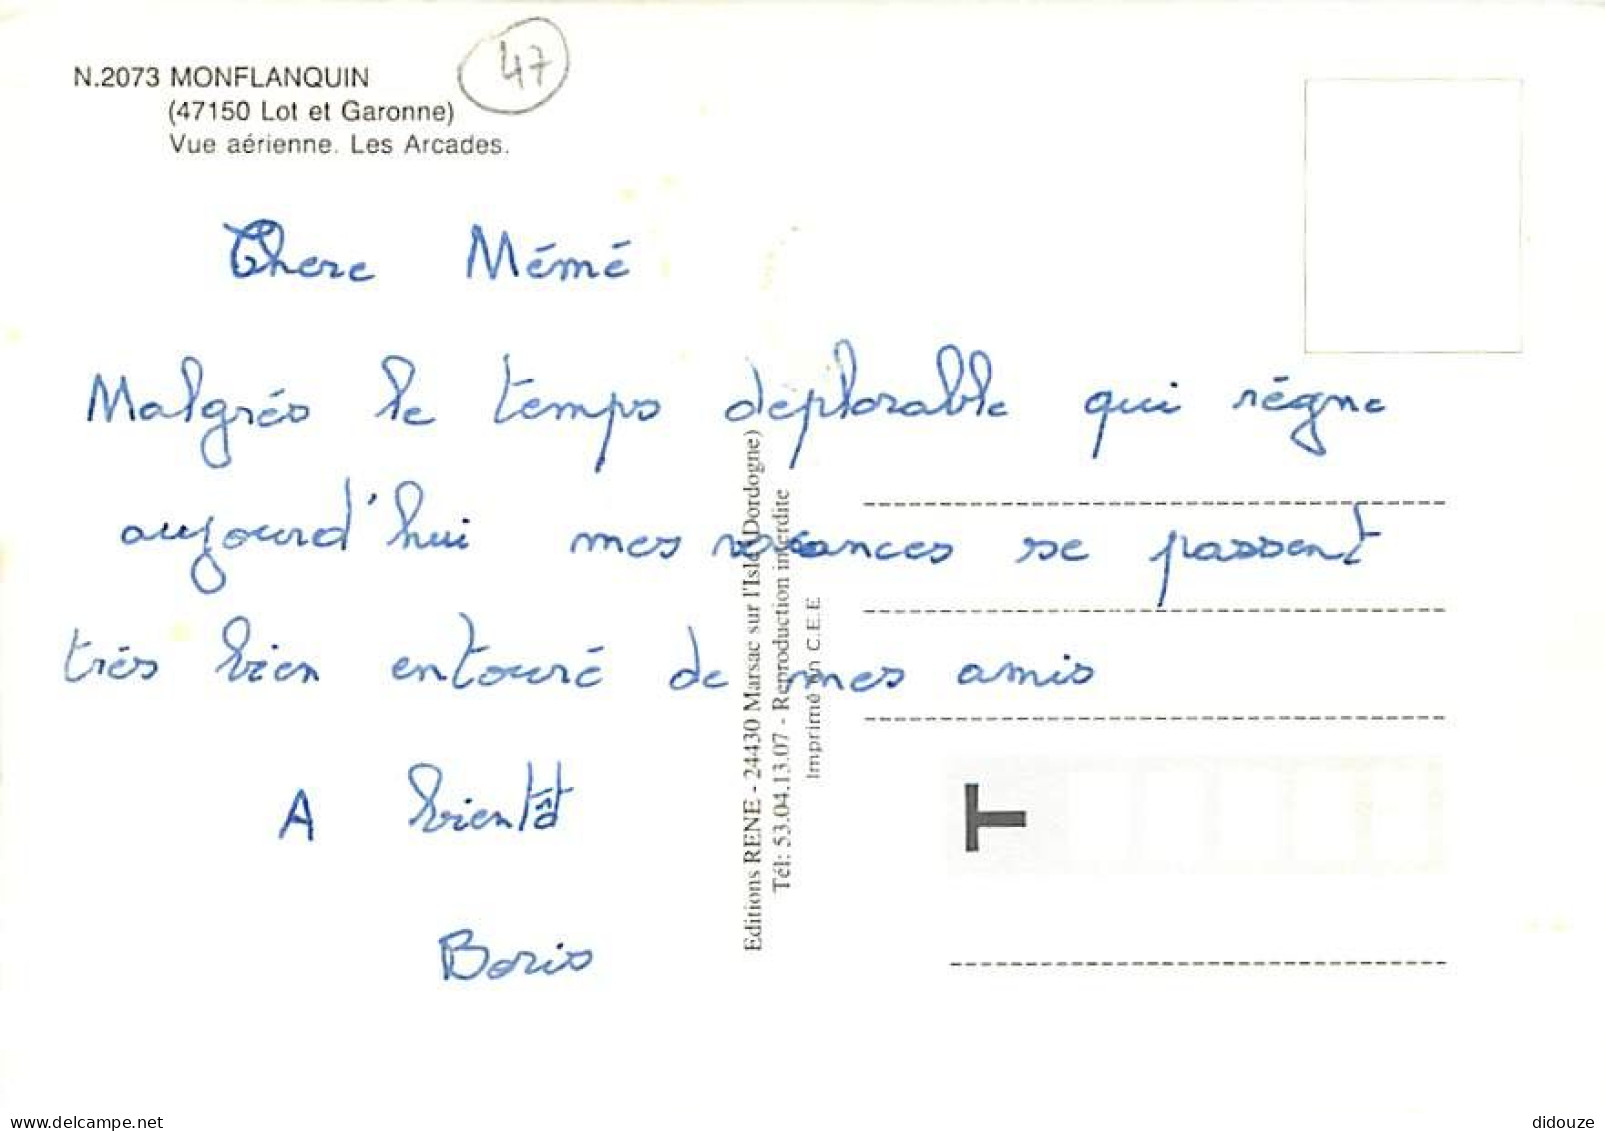 47
N.2073 MONFLANQUIN
(47150 Lot et Garonne)
Vue aérienne. Les Arcades.
Chere Mémé
Malgrés le temps déplorable qui régne
aujourd'hui mes vacances se passent
trés bien entouré de mes amis
A bientôt
Boris
Editions RENE - 24430 Marsac sur l'Isle (Dordogne)
Tél: 53.04.13.07 - Reproduction interdite
Imprimé en C.E.E
T
www.delcampe.net
didouze